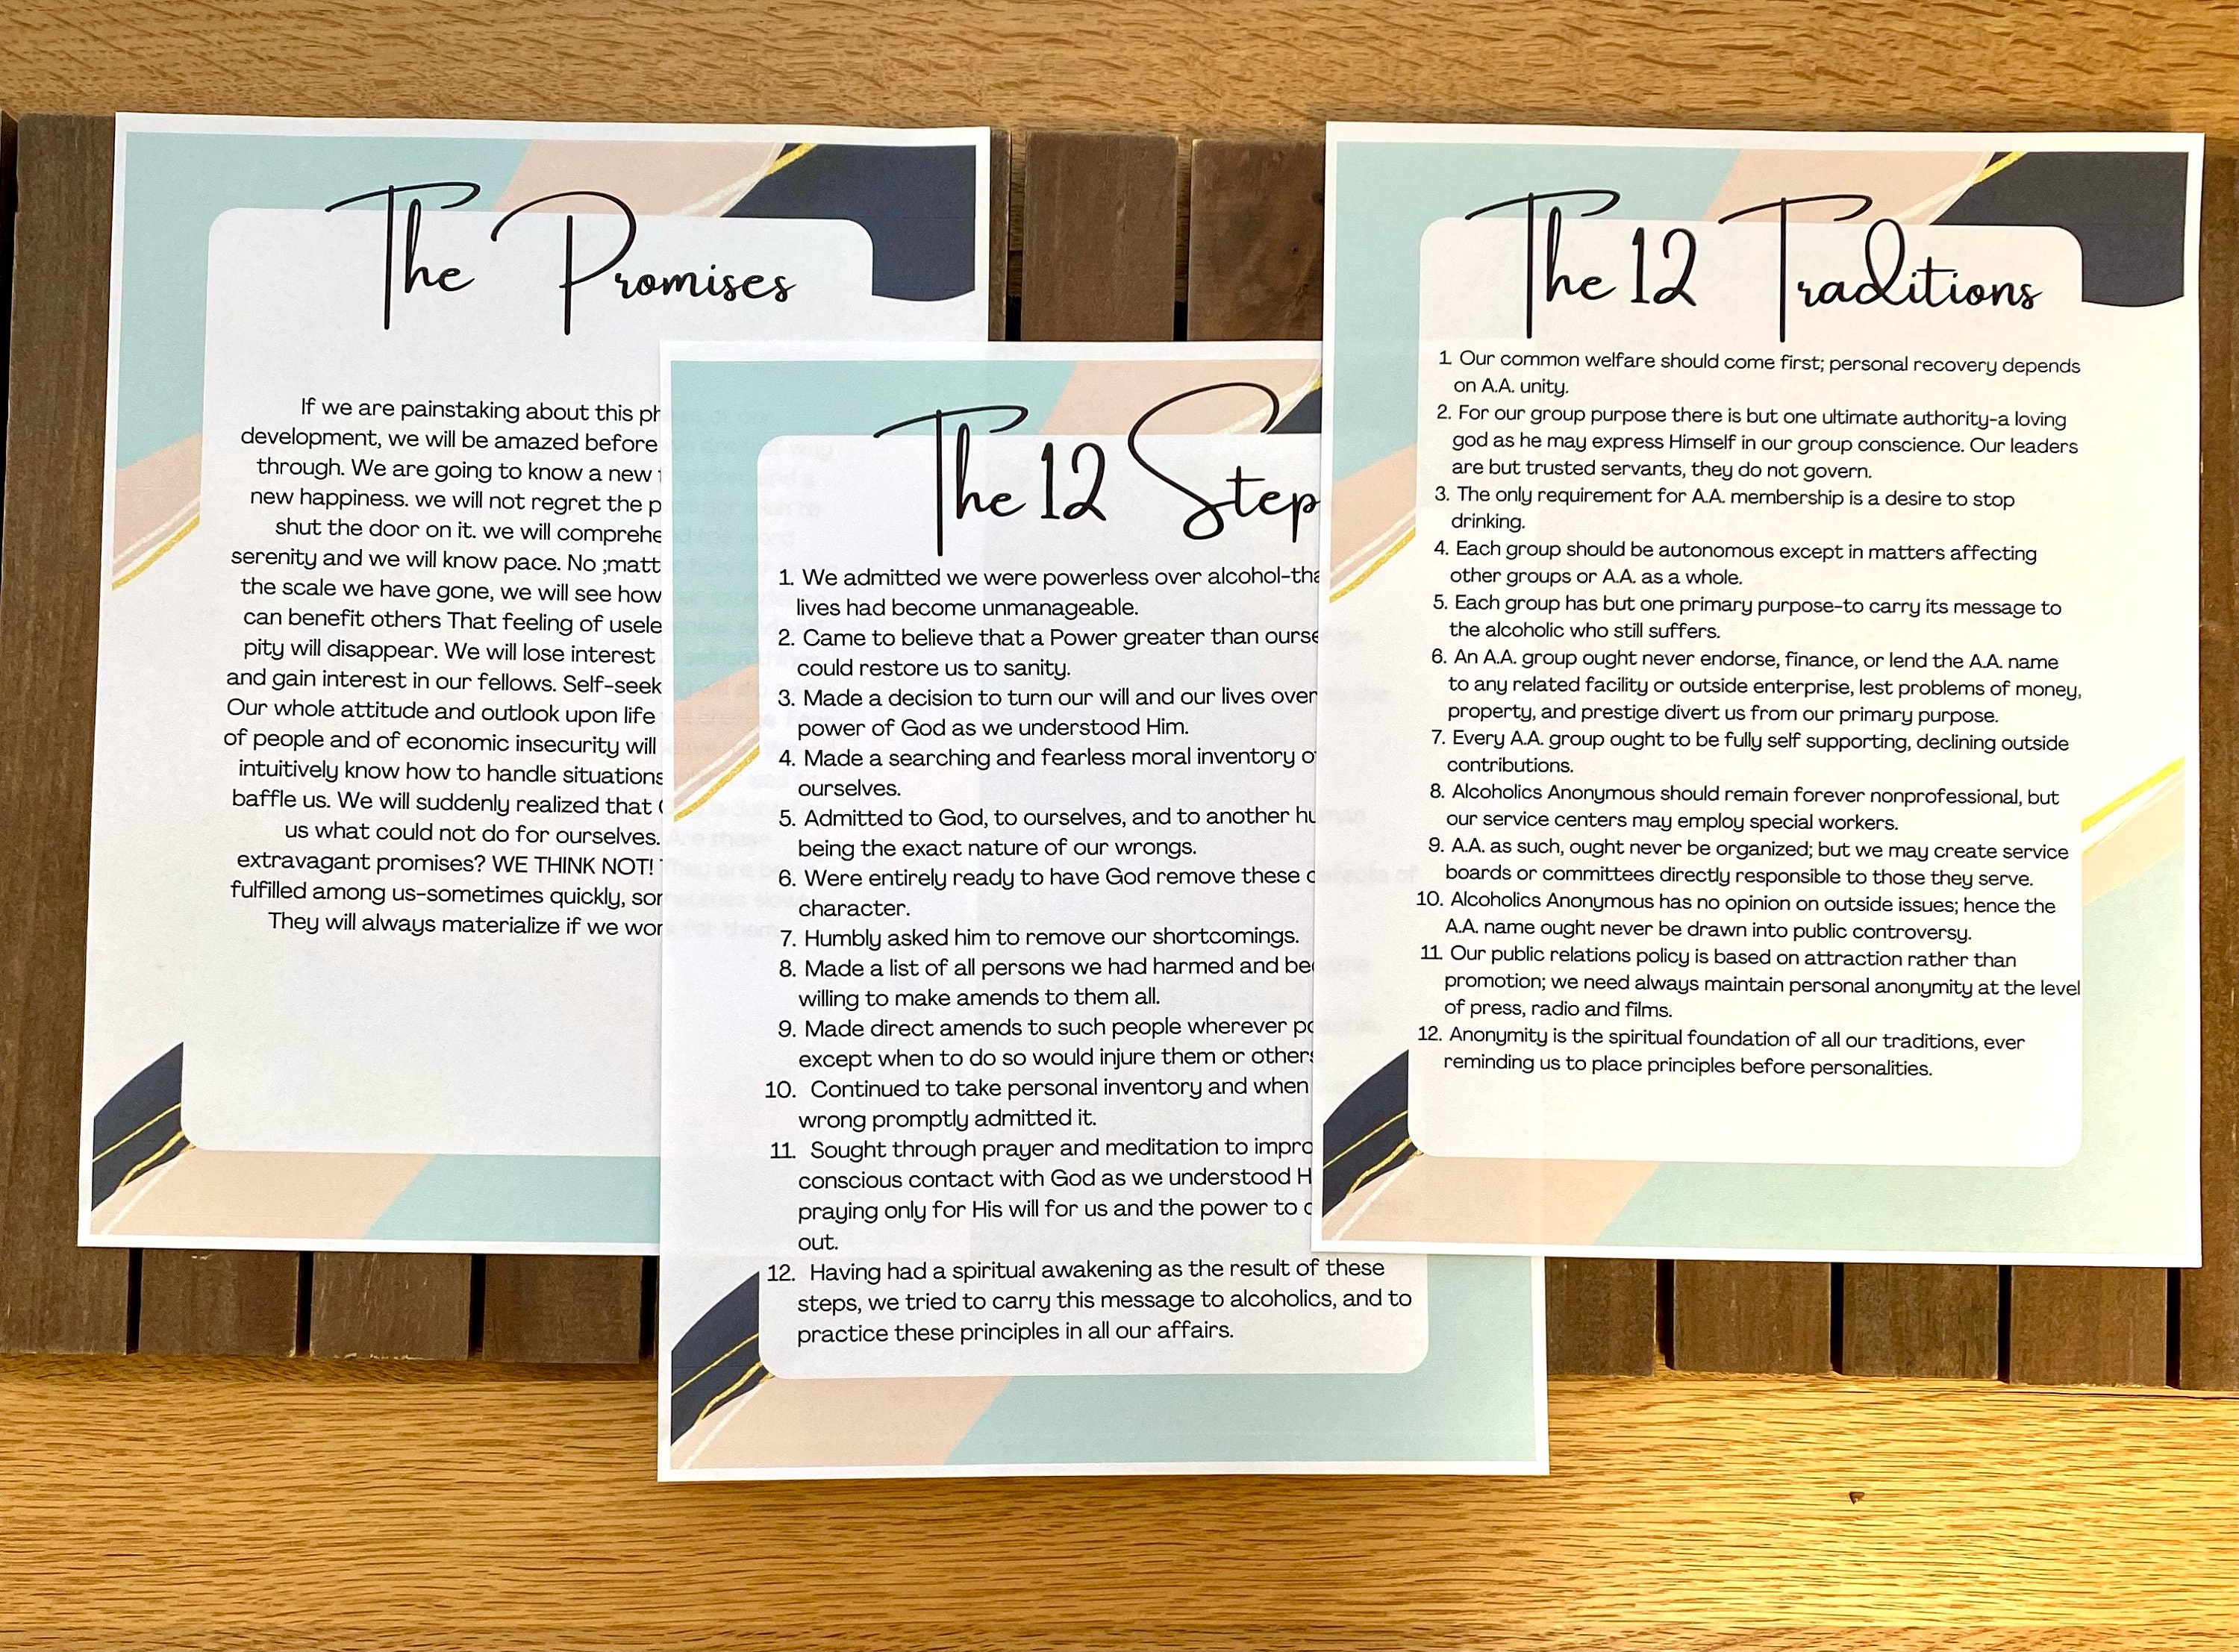 The Promises
If we are painstaking about this
development, we will be amazed before
through. We are going to know a new
new happiness. we will not regret the
shut the door on it. we will
serenity and we will know pace. No ;matt
the scale we have gone, we will see how
can benefit others That feeling of
pity will disappear. We will lose interest
and gain interest in our fellows. Self-seek
Our whole attitude and outlook upon life
of people and of economic insecurity will
intuitively know how to handle situations
baffle us. We will suddenly realized that
us what could not do for ourselves.
extravagant promises? WE THINK NOT!
fulfilled among us-sometimes quickly,
They will always materialize if we
The 12 Step
1. We admitted we were powerless over alcohol-tha
lives had become unmanageable.
2. Came to believe that a Power greater than ourse
could restore us to sanity.
3. Made a decision to turn our will and our lives over
power of God as we understood Him.
4. Made a searching and fearless moral inventory
ourselves.
5. Admitted to God, to ourselves, and to another
being the exact nature of our wrongs.
6. Were entirely ready to have God remove these
character.
7. Humbly asked him to remove our shortcomings.
8. Made a list of all persons we had harmed and
willing to make amends to them all.
9. Made direct amends to such people wherever
except when to do so would injure them or others
10. Continued to take personal inventory and when
wrong promptly admitted it.
11. Sought through prayer and meditation to impro
conscious contact with God as we understood
praying only for His will for us and the power to
out.
12. Having had a spiritual awakening as the result of these
steps, we tried to carry this message to alcoholics, and to
practice these principles in all our affairs.
The 12 Traditions
1. Our common welfare should come first; personal recovery depends
on A.A. unity.
2. For our group purpose there is but one ultimate authority-a loving
god as he may express Himself in our group conscience. Our leaders
are but trusted servants, they do not govern.
3. The only requirement for A.A. membership is a desire to stop
drinking.
4. Each group should be autonomous except in matters affecting
other groups or A.A. as a whole.
5. Each group has but one primary purpose-to carry its message to
the alcoholic who still suffers.
6. An A.A. group ought never endorse, finance, or lend the A.A. name
to any related facility or outside enterprise, lest problems of money,
property, and prestige divert us from our primary purpose.
7. Every A.A. group ought to be fully self supporting, declining outside
contributions.
8. Alcoholics Anonymous should remain forever nonprofessional, but
our service centers may employ special workers.
9. A.A. as such, ought never be organized; but we may create service
boards or committees directly responsible to those they serve.
10. Alcoholics Anonymous has no opinion on outside issues; hence the
A.A. name ought never be drawn into public controversy.
11. Our public relations policy is based on attraction rather than
promotion; we need always maintain personal anonymity at the level
of press, radio and films.
12. Anonymity is the spiritual foundation of all our traditions, ever
reminding us to place principles before personalities.